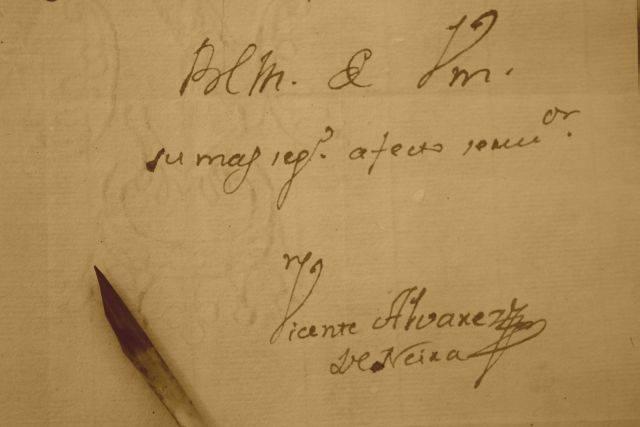 BlM. de Vm.
su mas segr. afecto servior.
Vicente Alvarez
De Neira